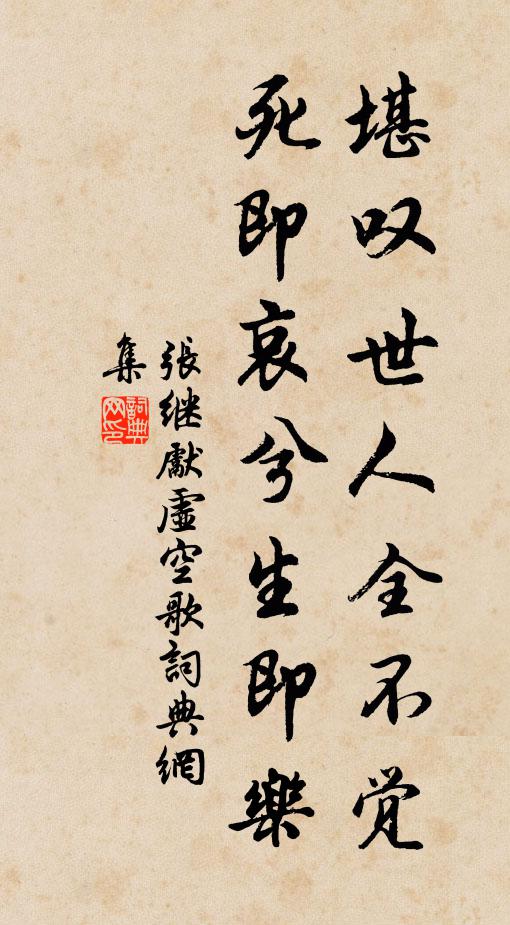 堪叹世人全不觉
死即哀兮生即樂
張继獻虛空歌詞典網
集
詞典
网印